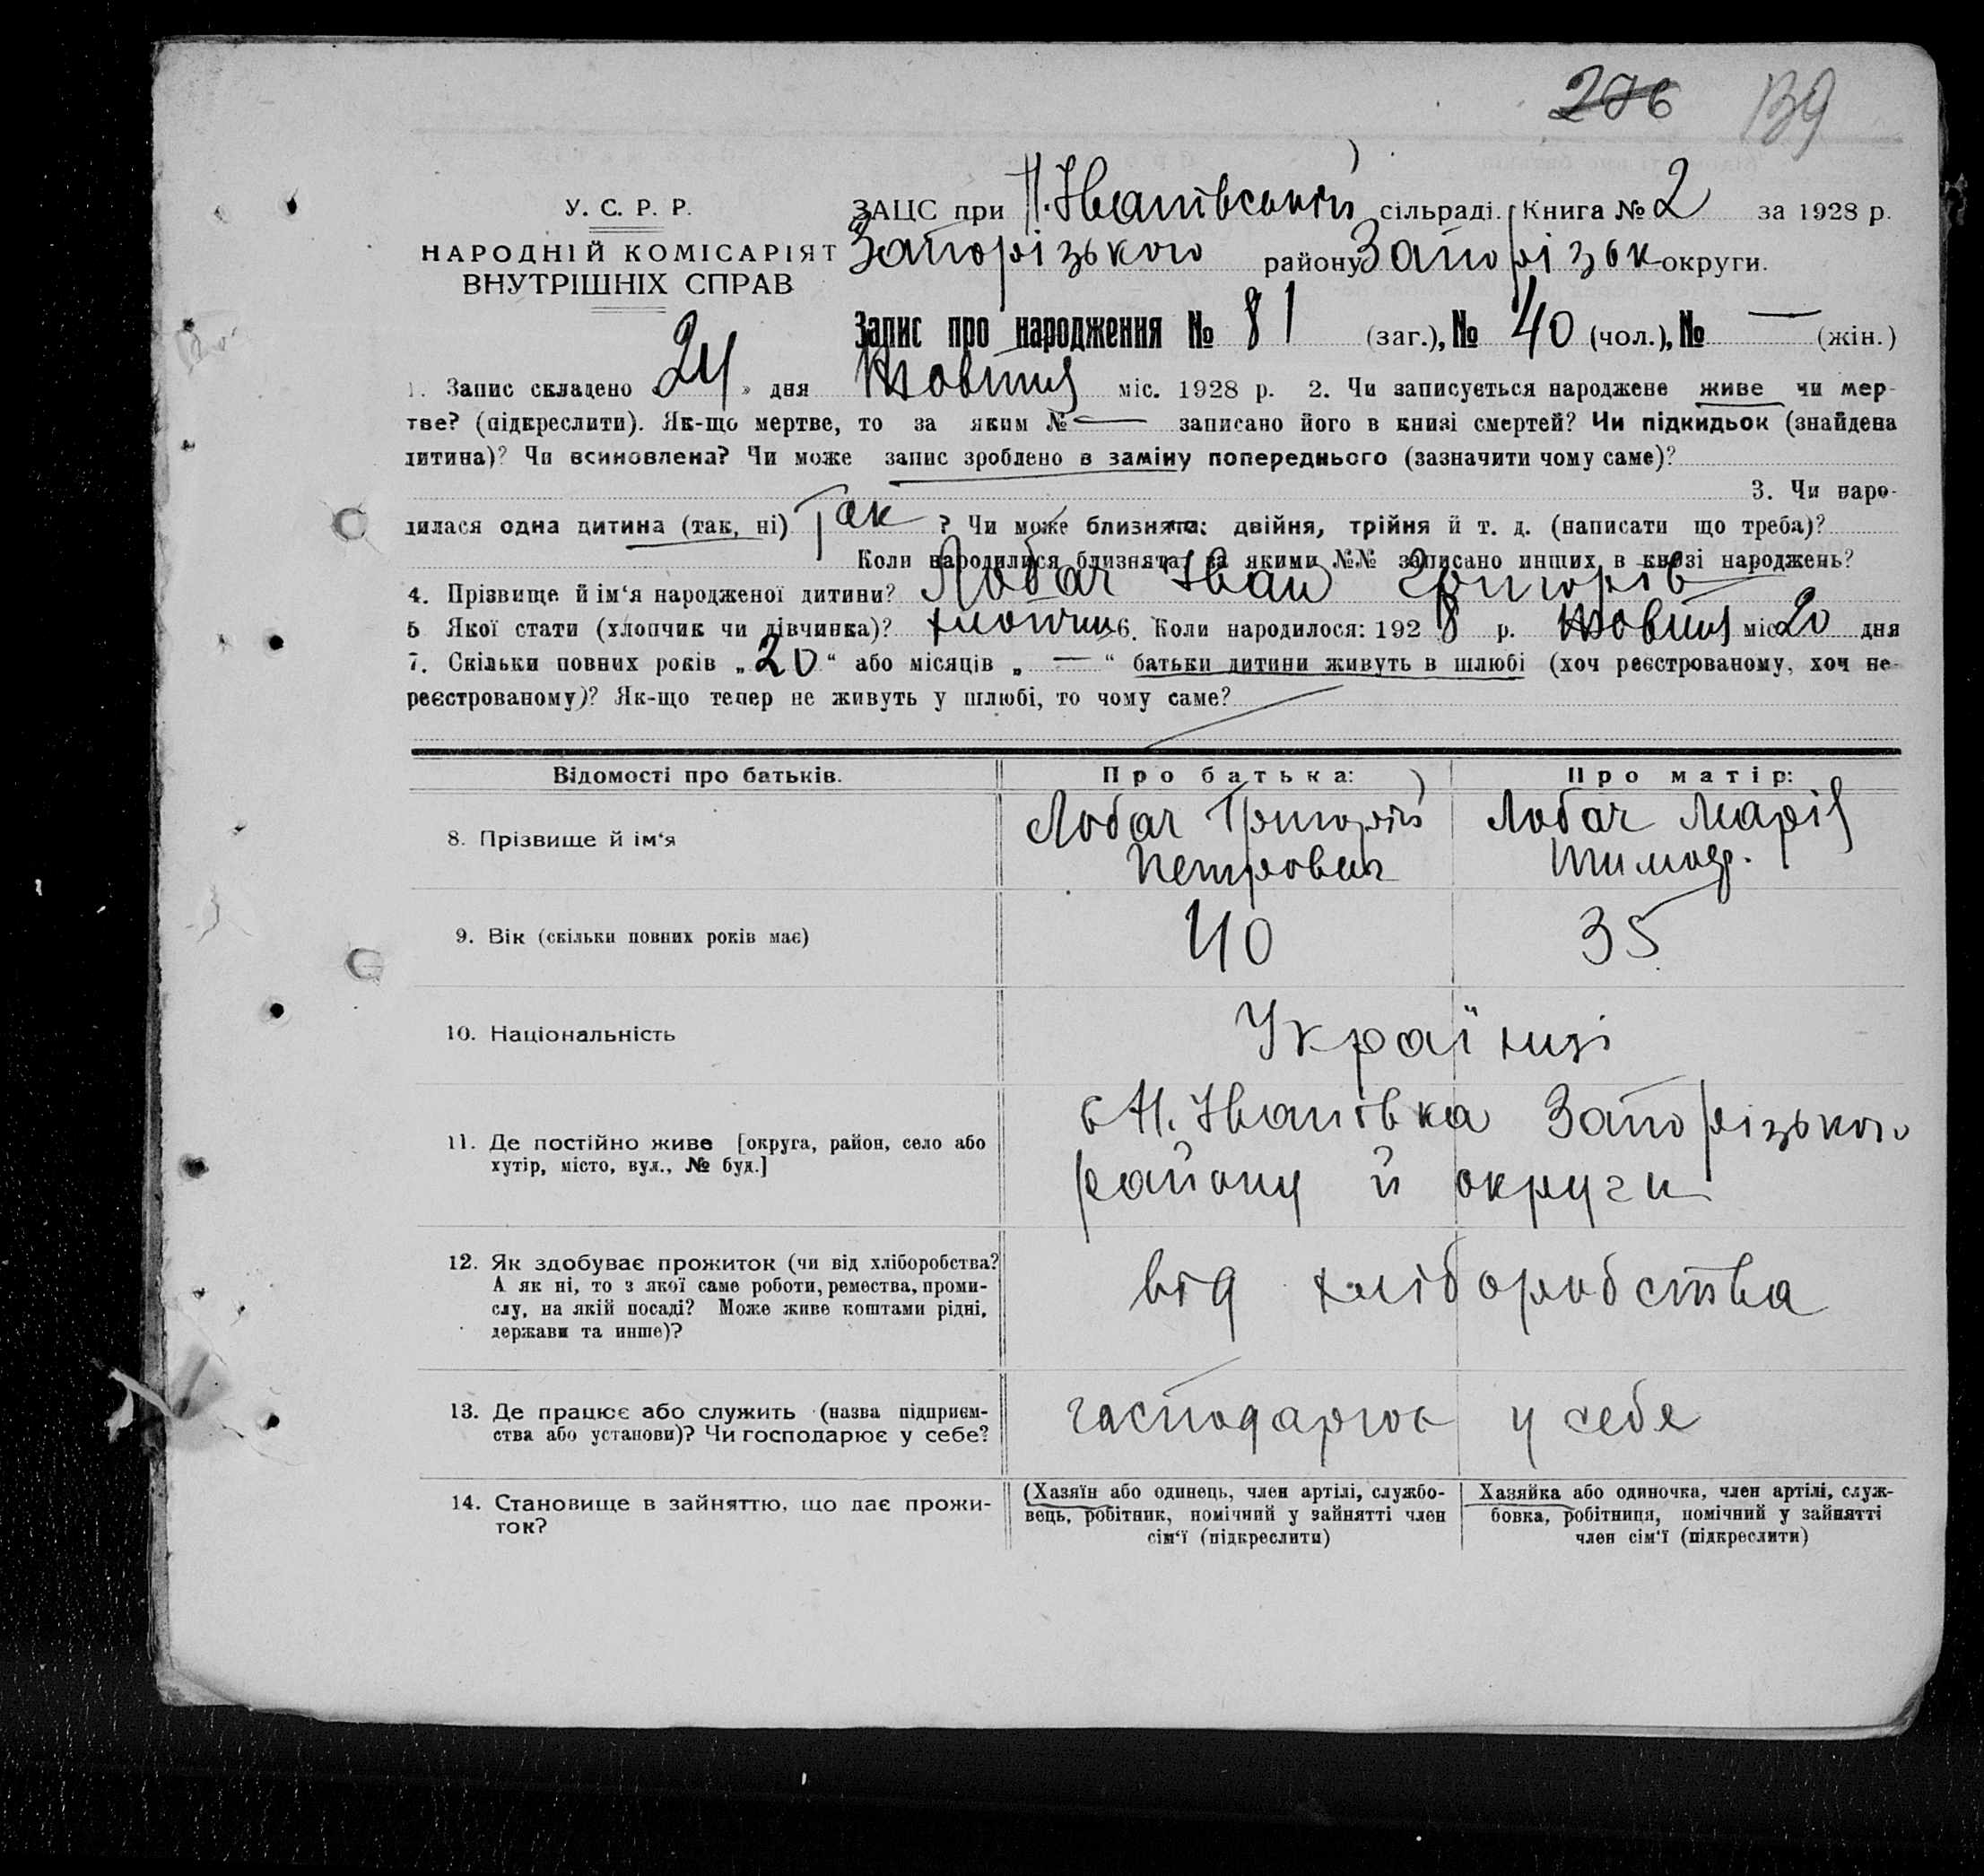 276 139
У. С. Р. Р.
НАРОДНІЙ КОМІСАРІЯТ
ВНУТРІШНІХ СПРАВ
ЗАЦС при Н.Іванівській сільраді. Книга № 2 за 1928 р.
Запорізького району Запорізьк округи.
Запис про народження № 81 (заг.), № 40 (чол.), № — (жін.)
1. Запис складено „24" дня Жовтня міс. 1928 р. 2. Чи записується народжене живе чи мер-
тве? (підкреслити). Як-що мертве, то за яким № — записано його в книзі смертей? Чи підкидьок (знайдена
дитина)? Чи всиновлена? Чи може запис зроблено в заміну попереднього (зазначити чому саме)?
3. Чи наро-
дилася одна дитина (так, ні) Так ? Чи може близнята: двійня, трійня й т. д. (написати що треба)?
Коли народилися близнята, за якими №№ записано инших в книзі народжень?
4. Прізвище й ім‘я народженої дитини? Лобач Іван Григорів
5 Якої стати (хлопчик чи дівчинка)? хлопчик 6. Коли народилося: 1928 р. Жовтня міс 20 дня
7. Скільки повних років „20“ або місяців „ — “ батьки дитини живуть в шлюбі (хоч реєстрованому, хоч не-
реєстрованому)? Як-що тепер не живуть у шлюбі, то чому саме?
Відомості про батьків. Про батька: Про матір:
8. Прізвище й ім‘я Лобач Григорій Лобач Марія
Петрович Тимоф.
9. Вік (скільки повних років має) 40 35
10. Національність Українці
11. Де постійно живе [округа, район, село або
хутір, місто, вул., № буд.]
с Н. Іванівка Запорізького
району й округи
12. Як здобуває прожиток (чи від хліборобства?
А як ні, то з якої саме роботи, ремества, проми-
слу, на якій посаді? Може живе коштами рідні,
держави та инше)?
від хліборобства
13. Де працює або служить (назва підприєм-
ства або установи)? Чи господарює у себе?
господарює у себе
14. Становище в зайняттю, що дає прожи-
ток?
(Хазяїн або одинець, член артілі, службо-
вець, робітник, помічний у зайнятті член
сім‘ї (підкреслити)
Хазяйка або одиночка, член артілі, служ-
бовка, робітниця, помічний у зайнятті
член сім‘ї (підкреслити)